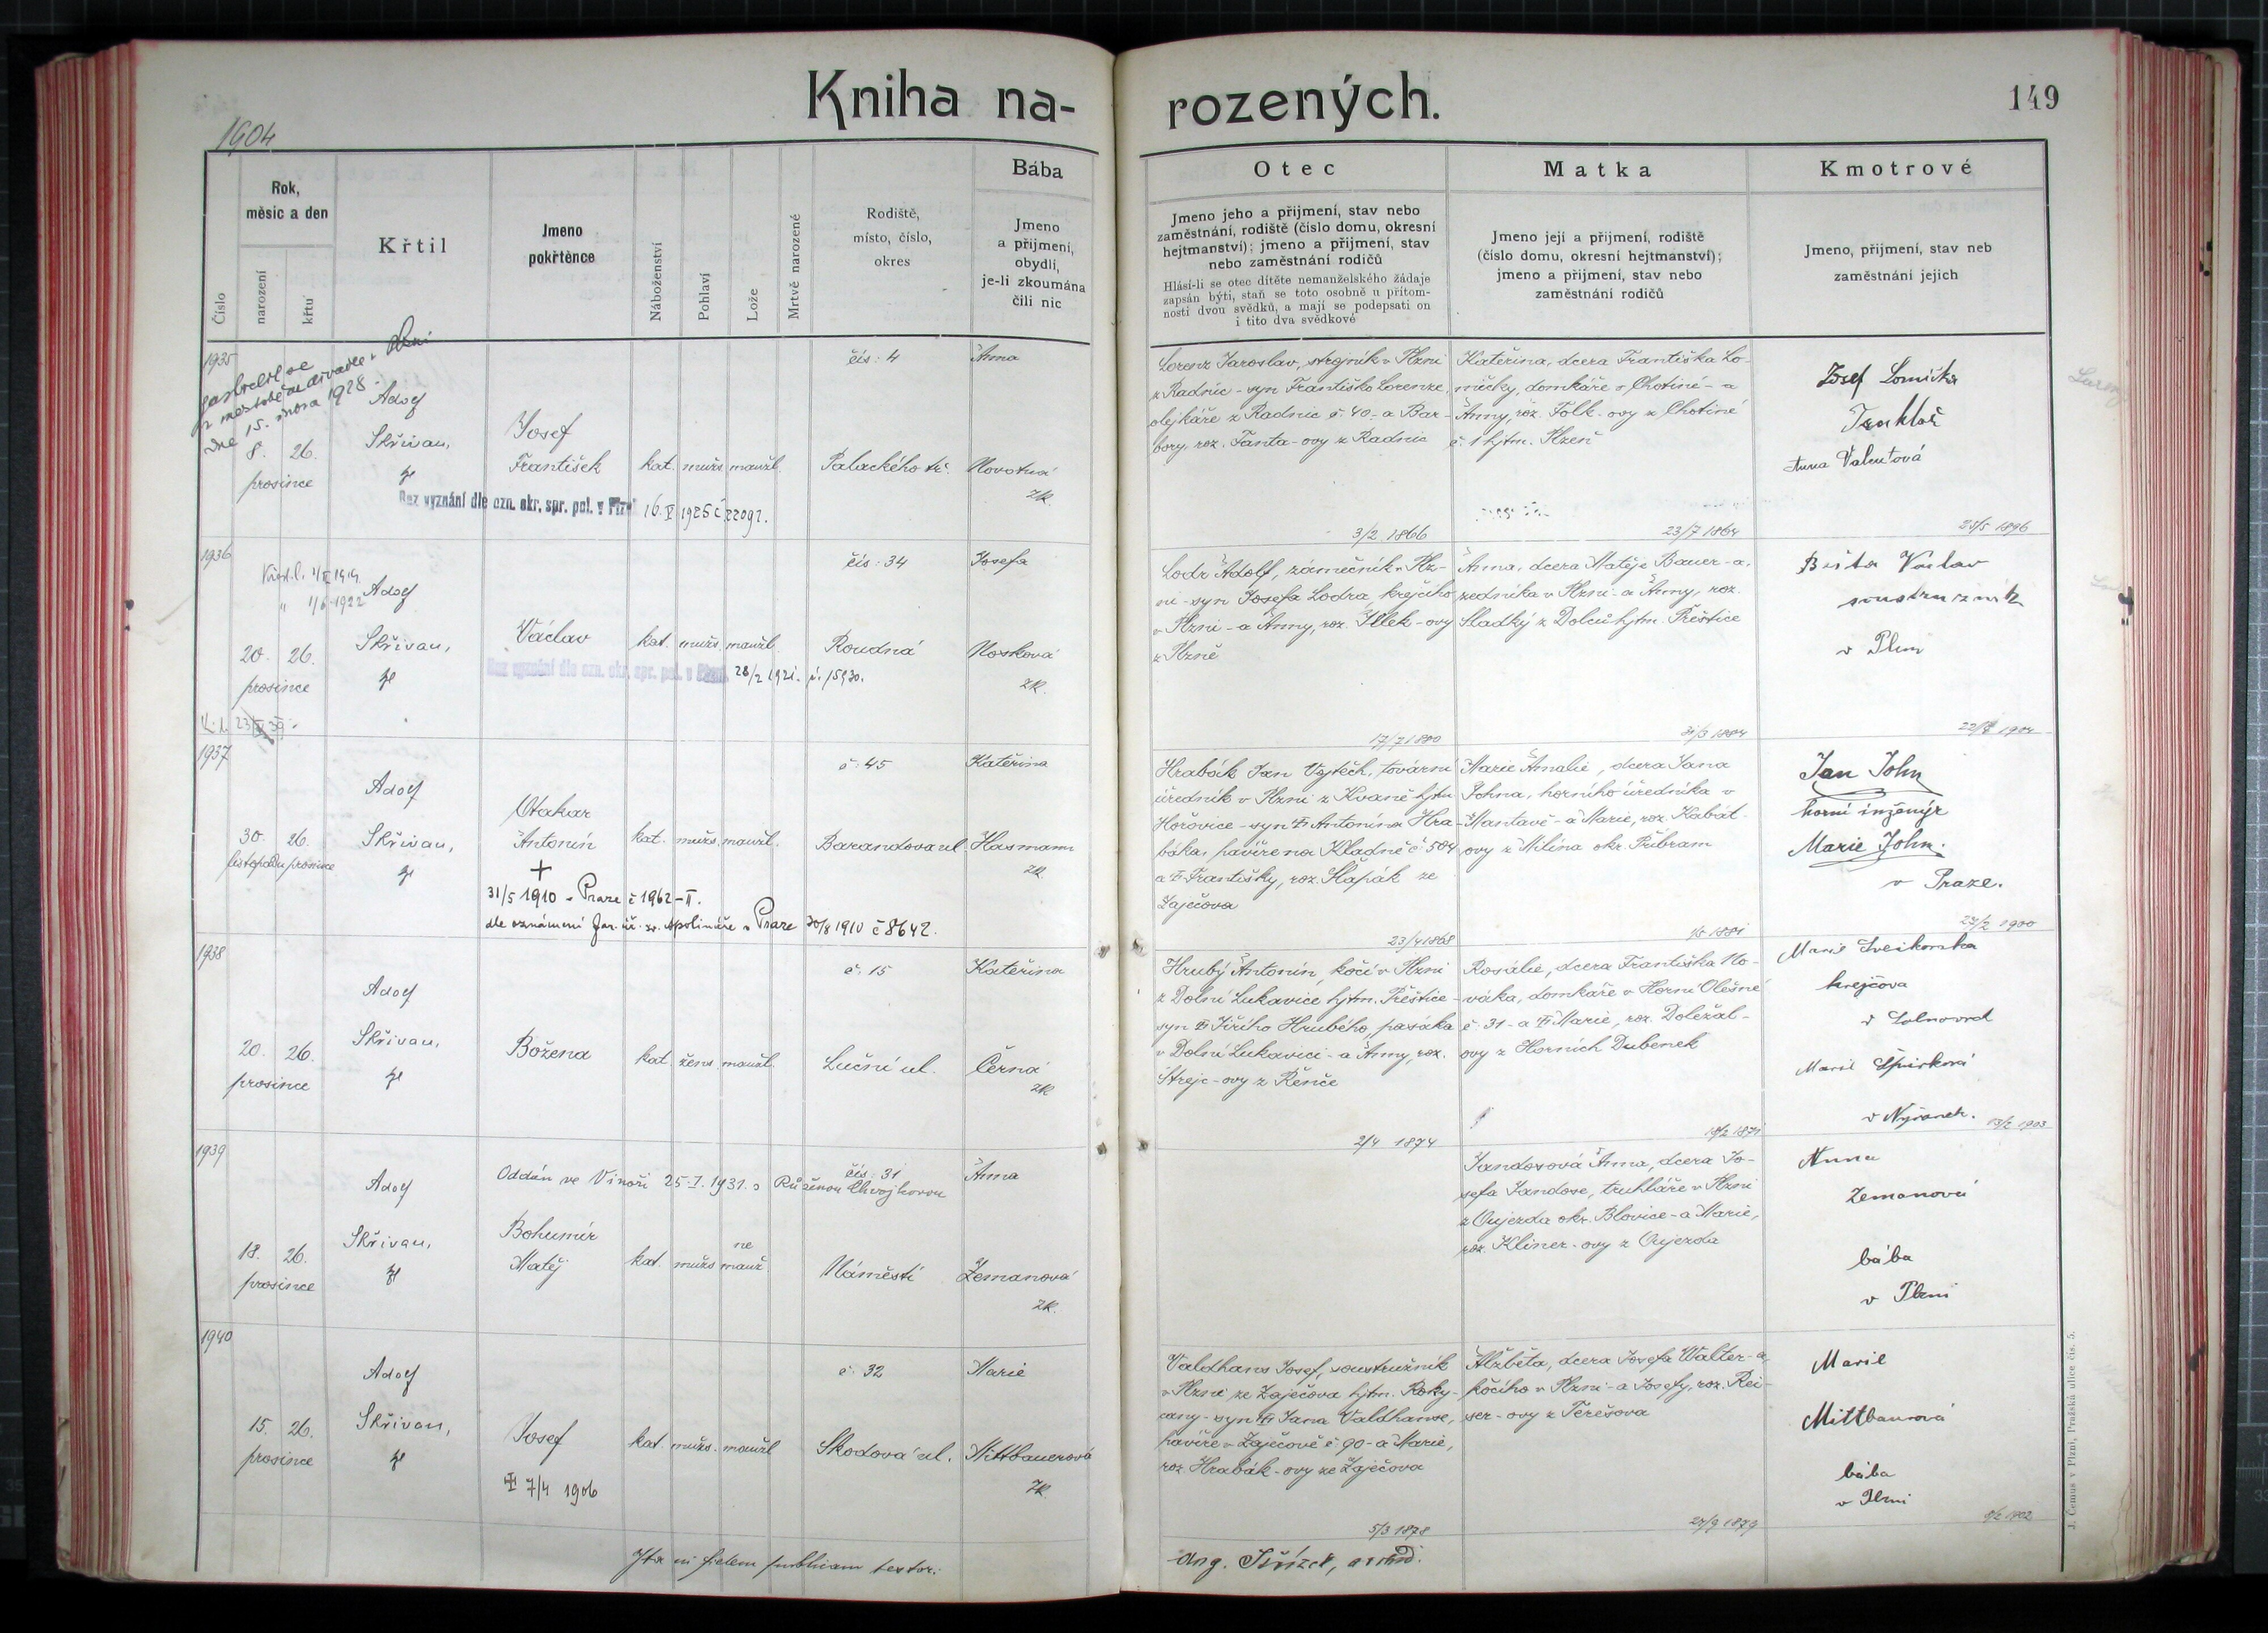 Kniha na-
rozených.
149
1904
Číslo
Rok,
měsíc a den
narození
křtu
Křtil
Jmeno
pokřtěnce
Náboženství
Pohlaví
Lože
Mrtvě narozené
Rodiště,
místo, číslo,
okres
Bába
Jmeno
a přijmení,
obydlí,
je-li zkoumána
čili nic
Otec
Jmeno jeho a přijmení, stav nebo
zaměstnání, rodiště (číslo domu, okresní
hejtmanství); jmeno a přijmení, stav
nebo zaměstnání rodičů
Hlásí-li se otec dítěte nemanželského žádaje
zapsán býti, staň se toto osobně u přítom-
nosti dvou svědků, a mají se podepsati on
i tito dva svědkové
Matka
Jmeno její a přijmení, rodiště
(číslo domu, okresní hejtmanství);
jmeno a přijmení, stav nebo
zaměstnání rodičů
Kmotrové
Jmeno, přijmení, stav neb
zaměstnání jejich
1935
zastřelil se
v městském divadle v Plzni
dne 15. února 1928
8. 26.
prosince
Adolf
Skřivan,
Josef
František
kat. mužs. manžl.
čís: 4
Palackého tř.
Anna
Novotná
zk.
Bez vyznání dle ozn. okr. spr. pol. v Plzni 16. V 1925 č 22092.
Lorenz Jaroslav, strojník v Plzni
z Radnic - syn Františka Lorenze,
olejkáře z Radnic č. 40 - a Bar-
bory, roz. Fanta-ovy z Radnic
3/2 1866
Kateřina, dcera Františka Lo-
míčky, domkáře v Chotiné - a
Anny, roz. Folk-ovy z Chotiné
č. 1 hjtm. Plzeň
23/7 1864
Josef Lomička
Anna Valentová
25/5 1896
1936
1/6 1922
20. 26.
prosince
Adolf
Skřivan,
Václav
kat. mužs. manžl.
čís: 34
Roudná
Josefa
Nosková
zk.
Bez vyznání dle ozn. okr. spr. pol. v Plzni 28/2 1921. č. 15930.
Lodr Adolf, zámečník v Plz-
ni - syn Josefa Lodra, krejčího
v Plzni - a Anny, roz. Illek-ovy
z Plzně
17/7 1880
Anna, dcera Matěje Bauer-a,
zedníka v Plzni - a Anny, roz.
Sladký z Dolců hjtm. Přeštice
31/3 1884
Václav
soustružník
v Plzni
1904
1937
30. 26.
listopadu prosince
Adolf
Skřivan,
Otakar
Antonín
+
kat. mužs. manžl.
č: 45
Barandova ul.
Kateřina
Hasmann
zk.
31/5 1910 v Praze č 1962-II.
dle oznámení far. úř. sv. Apolináře v Praze 30/8 1910 č 8642.
Hrabák Jan Vojtěch, tovární
úředník v Plzni z Kvaně hjtm
Hořovice - syn † Antonína Hra-
báka, havíře na Kladně č 504
a † Františky, roz. Šlapák ze
Zaječova
23/4 1868
Marie Amalie, dcera Jana
Johna, horního úředníka v
Mantavě - a Marie, roz. Kabát-
ovy z Milína okr. Příbram
1881
Jan John
horní inženýr
Marie John.
v Praze.
1900
1938
20. 26.
prosince
Adolf
Skřivan,
Božena
kat. žens. manžl.
č: 15
Luční ul.
Kateřina
Černá
zk
Hrubý Antonín, kočí v Plzni
z Dolní Lukavice hjtm. Přeštice -
syn † Jiřího Hrubého, pasáka
v Dolní Lukavici - a Anny, roz.
Strejc-ovy z Řenče
2/4 1874
Rosálie, dcera Františka No-
váka, domkáře v Horní Olešné
č. 31 - a † Marie, roz. Doležal-
ovy z Horních Dubenek
18/2 1871
krejčova
Marie Špirková
v Nýřanech.
13/2 1903
1939
18. 26.
prosince
Adolf
Skřivan,
Oddán ve Vinoři 25. I. 1931. s Růženou Chvojkovou
Bohumír
Matěj
kat. mužs. ne
manž
čís: 31
Náměstí
Anna
Zemanová
zk.
Jandosová Anna, dcera Jo-
sefa Jandose, truhláře v Plzni
z Oujezda okr. Blovice - a Marie,
roz. Kliner-ovy z Oujezda
Anna
Zemanová
bába
v Plzni
1940
15. 26.
prosince
Adolf
Skřivan,
Josef
† 7/4 1906
kat. mužs. manžl
č: 32
Skodova ul.
Marie
Mittbauerová
zk
Valdhans Josef, soustružník
v Plzni ze Zaječova hjtm. Roky-
cany - syn † Jana Valdhanse,
havíře v Zaječově č 90 - a Marie,
roz. Hrabák-ovy ze Zaječova
5/3 1878
Alžběta, dcera Josefa Walter-a,
kočího v Plzni - a Josefy, roz. Rei-
ser-ovy z Terešova
27/9 1879
Marie
Mittbaurová
bába
v Plzni
1902
Ita in fidem publicam testor:
J. Černus v Plzni, Pražská ulice čís. 5.